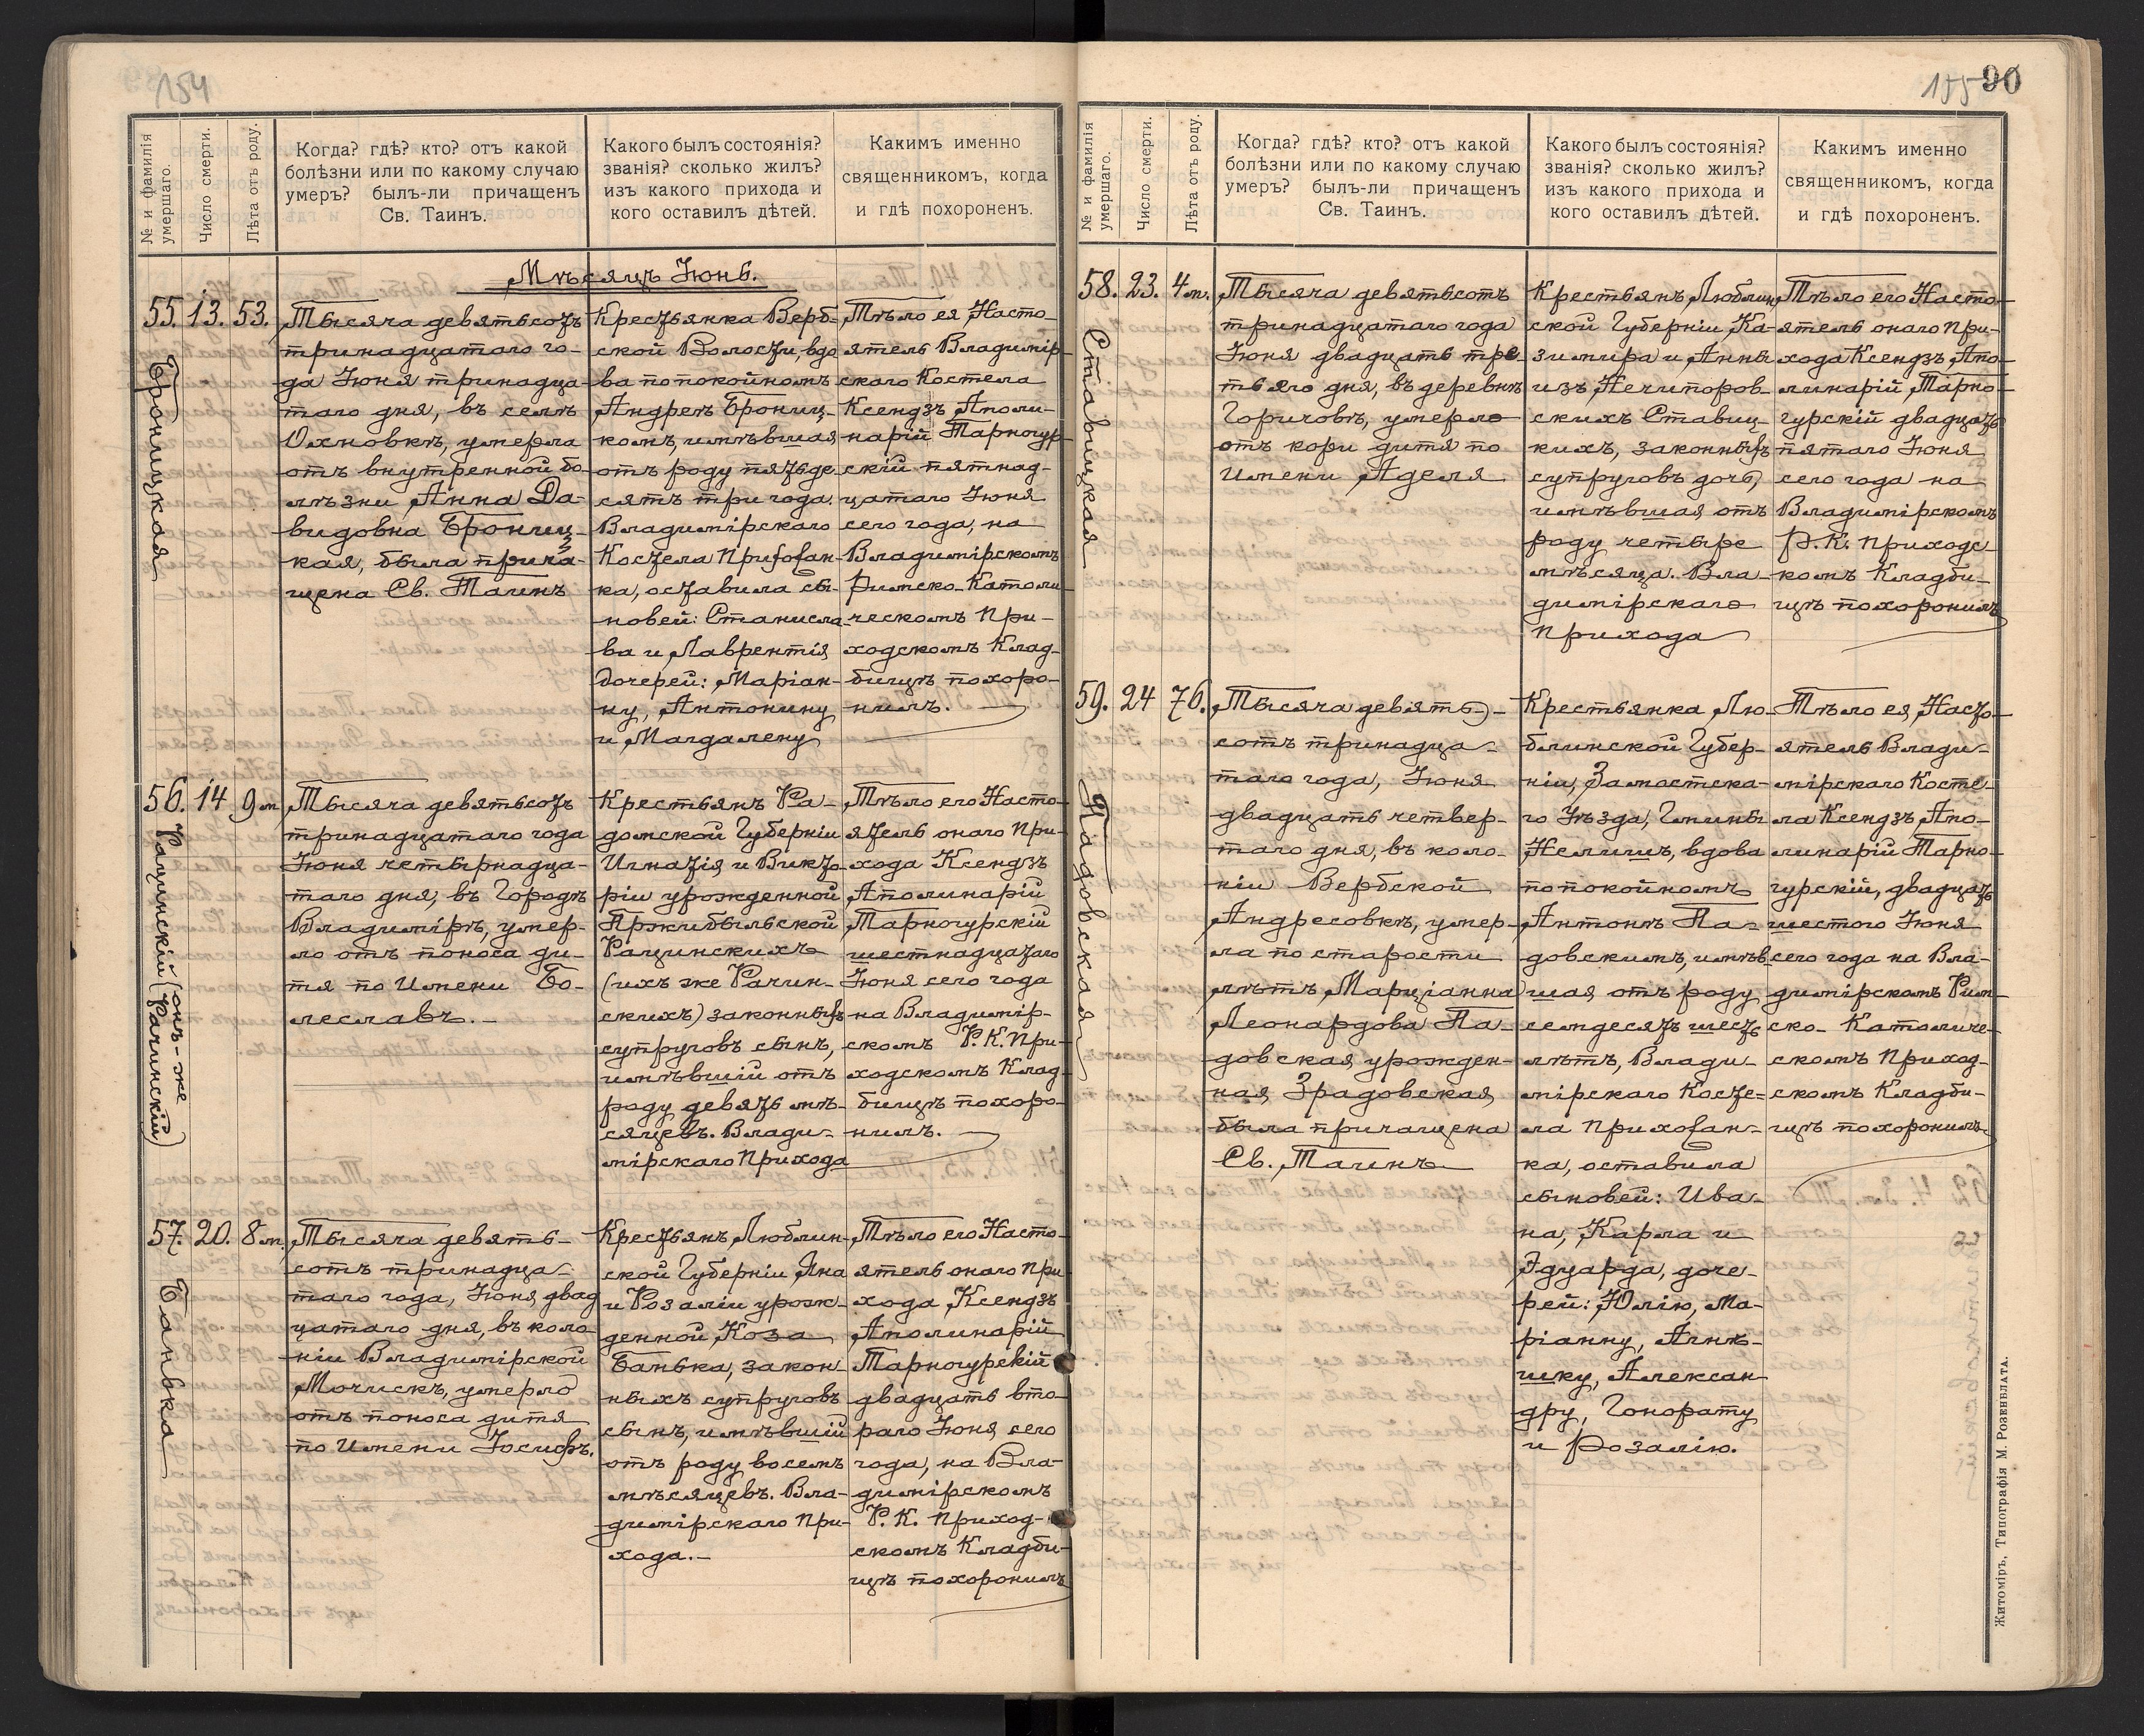 154
№ и фамилія умершаго.
Число смерти.
Лѣта отъ роду.
Когда? гдѣ? кто? отъ какой
болѣзни или по какому случаю
умеръ? былъ-ли причащенъ
Св. Таинъ.
Какого былъ состоянія?
званія? сколько жилъ?
изъ какого прихода и
кого оставилъ дѣтей.
Какимъ именно
священникомъ, когда
и гдѣ похороненъ.
Мѣсяцъ Іюнь.
55. 13. 53.
Броницкая
Тысяча девятьсотъ
тринадцатаго го-
да Іюня тринадца-
таго дня, въ селѣ
Охновкѣ, умерла
отъ внутренной бо-
лѣзни Анна Да-
видовна Брониц-
кая, была прича-
щена Св. Таинъ
Крестьянка Верб-
ской Волости, вдо
ва по покойномъ
Андреѣ Брониц-
комъ, имѣвшая
отъ роду пятьде
сятъ три года.
Владимірскаго
Костела Прихожан-
ка, оставила сы-
новей: Станисла-
ва и Лаврентія
дочерей: Маріан-
ну, Антонину
и Магдалену
Тѣло ея Насто-
ятель Владимір-
скаго Костела
Ксендзъ Аполи-
нарій Тарногур-
скій пятнад-
цатаго Іюня
сего года, на
Владимірскомъ
Римско-Католи-
ческомъ При-
ходскомъ Клад-
бищѣ похоро-
нилъ.
56. 14 9 м
Рацинскій (онъ-же Рачинскій)
Тысяча девятьсотъ
тринадцатаго года
Іюня четырнадца-
таго дня, въ Городѣ
Владимірѣ, умер-
ло отъ поноса ди-
тя по Имени Бо-
леславъ.-
Крестьянъ Ра-
домской Губерніи
Игнатія и Викто-
ріи урожденной
Пржибыльской
Рацинскихъ
(ихъ же Рачин-
скихъ) законныхъ
супруговъ сынъ,
имѣвшій отъ
роду девять мѣ-
сяцевъ. Влади-
мірскаго Прихода
Тѣло его Насто-
ятель онаго При-
хода Ксендзъ
Аполинарій
Тарногурскій
шестнадцатаго
Іюня сего года
на Владимір-
скомъ Р.К. При-
ходскомъ Клад-
бищѣ похоро-
нилъ.
57. 20. 8 м.
Банька
Тысяча девять-
сотъ тринадца-
таго года, Іюня двад
цатаго дня, въ коло-
ніи Владимірской
Мочискъ, умерло
отъ поноса дитя
по Имени Іосифъ.
Крестьянъ Люблин-
ской Губерніи Яна
и Розаліи урож-
денной Коза
Банька, закон
ныхъ супруговъ
сынъ, имѣвшій
отъ роду восемъ
мѣсяцевъ. Вла-
димірскаго При-
хода.-
Тѣло его Насто-
ятель онаго При
хода Ксендзъ
Аполинарій
Тарногурскій
двадцать вто-
раго Іюня сего
года, на Вла-
димірскомъ
Р. К. Приход-
скомъ Кладби-
щѣ похоронилъ
155 90
№ и фамилія умершаго.
Число смерти.
Лѣта отъ роду.
Когда? гдѣ? кто? отъ какой
болѣзни или по какому случаю
умеръ? былъ-ли причащенъ
Св. Таинъ.
Какого былъ состоянія?
званія? сколько жилъ?
изъ какого прихода и
кого оставилъ дѣтей.
Какимъ именно
священникомъ, когда
и гдѣ похороненъ.
58. 23. 4 м.
Ставицкая
Тысяча девятьсотъ
тринадцатаго года
Іюня двадцать тре
тьяго дня, въ деревнѣ
Горичовѣ, умерло
отъ кори дитя по
Имени Аделя
Крестьянъ Люблин
ской Губерніи, Ка-
зимира и Анны
изъ Нечипоров-
скихъ Ставиц-
кихъ, законныхъ
супруговъ дочь,
имѣвшая отъ
роду четыре
мѣсяца. Вла-
димірскаго
Прихода
Тѣло его Насто-
ятель онаго При-
хода Ксендзъ Апо-
линарій Тарно-
гурскій двадцать
пятаго Іюня
сего года на
Владимірскомъ
Р.К. Приходс
комъ Кладби-
щѣ похоронилъ
59. 24 76.
Падовская
Тысяча девять-
сотъ тринадца-
таго года, Іюня
двадцать четвер-
таго дня, въ коло-
ніи Вербской
Андресовкѣ, умер-
ла по старости
лѣтъ Марціанна
Леонардова Па-
довская урожден-
ная Зрадовская
была причащена
Св. Таинъ
Крестьянка Лю-
блинской Губер-
ніи, Замостска-
го Уѣзда, Гмины
Нелишъ, вдова
по покойномъ
Антонѣ Па-
довскимъ, имѣв
шая отъ роду
семдесятъ шесть
лѣтъ, Влади-
мірскаго Косте-
ла Прихожан-
ка, оставила
сыновей: Ива-
на, Карла и
Эдуарда, доче-
рей: Юлію, Ма-
ріанну, Агнѣ-
шку, Алексан-
дру, Гонорату
и Розалію.
Тѣло ея, Насто-
ятель Влади-
мірскаго Косте-
ла Ксендзъ Апо-
линарій Тарно-
гурскій, двадцать
шестого Іюня
сего года на Вла-
димірскомъ Рим-
ско-Католиче-
скомъ Приход-
скомъ Кладби-
щѣ похоронилъ.
Житоміръ, Типографія М. Розенблата.